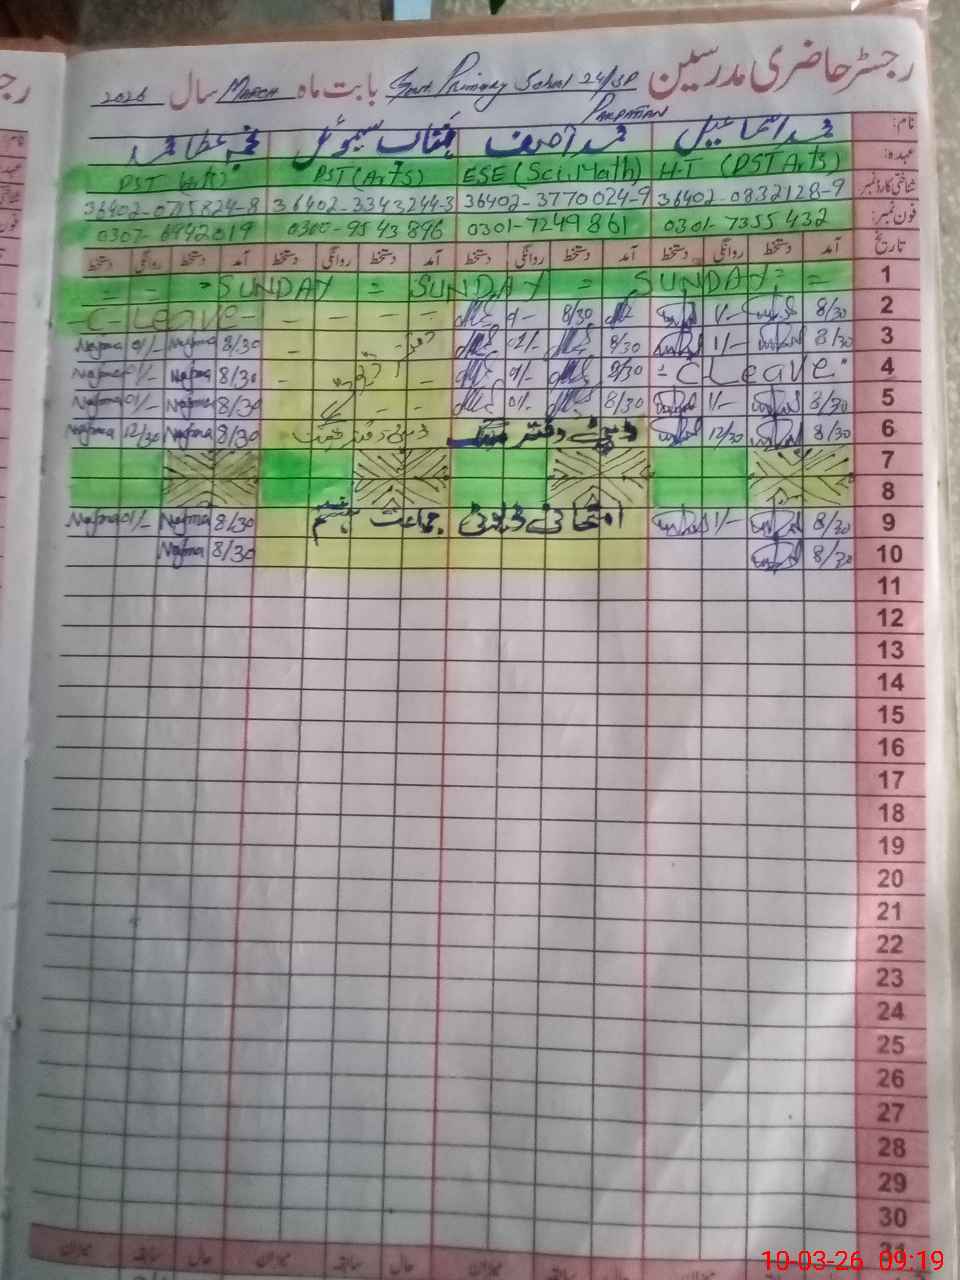 رجسٹر حاضری مدرسین Govt. Primary School 24/SP Pakpattan بابت ماہ March سال 2026
نام: محمد اسماعیل محمد آصف
عہدہ: H.T (PST Arts) ESE (Sci.Math) PST (Arts) PST
شناختی کارڈ نمبر 36402-0832128-9 36402-3770024-9 36402-3343244-3 36402-0715824-8
فون نمبر: 0301-7355432 0301-7249861 0300-9543896 0307-6942019
تاریخ آمد دستخط روانگی دستخط آمد دستخط روانگی دستخط آمد دستخط روانگی دستخط آمد دستخط روانگی دستخط
1 = SUNDAY = SUNDAY = SUNDAY = - =
2 8/30 1/- 8/30 - - - - - C - Leave -
3 8/30 1/- 8/30 01/- 8/30 Najma 01/- Najma
4 = C Leave 8/30 01/- 8/30 Najma 01/- Najma
5 8/30 1/- 8/30 01/- 8/30 Najma 01/- Najma
6 8/30 12/30 ڈپٹی دفتر میٹنگ 8/30 Najma 12/30 Najma
7
8
9 8/30 1/- امتحانی ڈیوٹی جماعت ہشتم 8/30 Najma 01/- Najma
10 8/30 8/30 Najma
11
12
13
14
15
16
17
18
19
20
21
22
23
24
25
26
27
28
29
30
31
حال سابقہ میزان حال سابقہ میزان
10-03-26 09:19